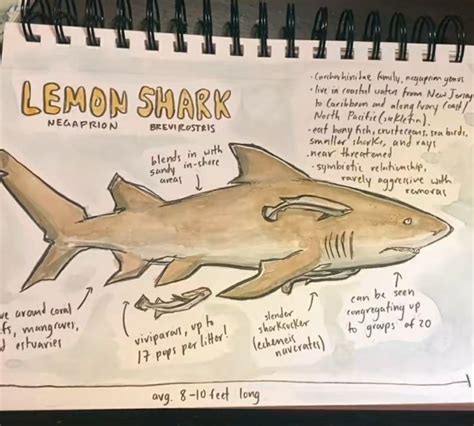 LEMON SHARK
NEGAPRION BREVIROSTRIS
• Carcharhinidae family, negaprion genus
• live in coastal waters from New Jersey
to Caribbean and along Ivory Coast,
North Pacific
• eat bony fish, crustaceans, sea birds,
smaller sharks, and rays
• near threatened
• symbiotic relationship,
rarely aggressive with
remoras
blends in with
sandy in-shore
areas
around coral
fs, mangroves,
d estuaries
viviparous, up to
17 pups per litter!
slender
sharksucker
(echeneis
naucrates)
can be seen
congregating up
to groups of 20
avg. 8-10 feet long